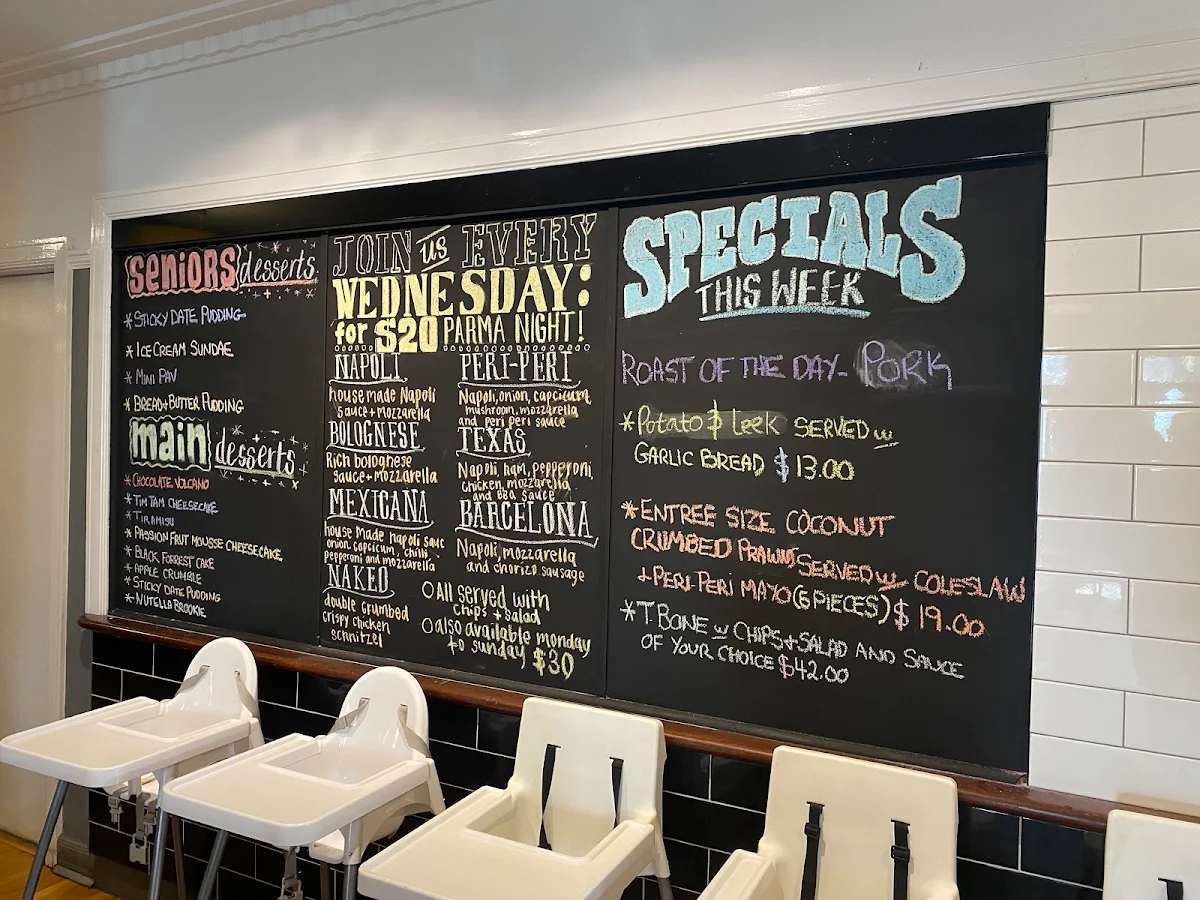 SENIORS desserts
* STICKY DATE PUDDING
* ICE CREAM SUNDAE
* MINI PAV
* BREAD+BUTTER PUDDING
main desserts
* CHOCOLATE VOLCANO
* TIM TAM CHEESECAKE
* TIRAMISU
* PASSION FRUIT MOUSSE CHEESECAKE
* BLACK FORREST CAKE
* APPLE CRUMBLE
* STICKY DATE PUDDING
* NUTELLA BROOKIE
JOIN us EVERY
WEDNESDAY:
for $20 PARMA NIGHT!
NAPOLI
house made Napoli
sauce + mozzarella
BOLOGNESE
Rich bolognese
sauce + mozzarella
MEXICANA
house made napoli sauc
onion, capcicum, chilli,
pepperoni and mozzarella
NAKED
double crumbed
crispy chicken
schnitzel
PERI-PERI
Napoli, onion, capcicum,
mushroom, mozzarella
and peri peri sauce
TEXAS
Napoli ham, pepperoni,
chicken, mozzarella
and BBQ sauce
BARCELONA
Napoli, mozzarella
and chorizo sausage
All served with
chips + salad
also available monday
to sunday $30
SPECIALS
THIS WEEK
ROAST OF THE DAY- PORK
* Potato & Leek SERVED w
GARLIC BREAD $13.00
* ENTREE SIZE COCONUT
CRUMBED PRAWNS SERVED w COLESLAW
+ PERI-PERI MAYO (6 PIECES) $19.00
* T.BONE w CHIPS + SALAD AND SAUCE
OF YOUR CHOICE $42.00